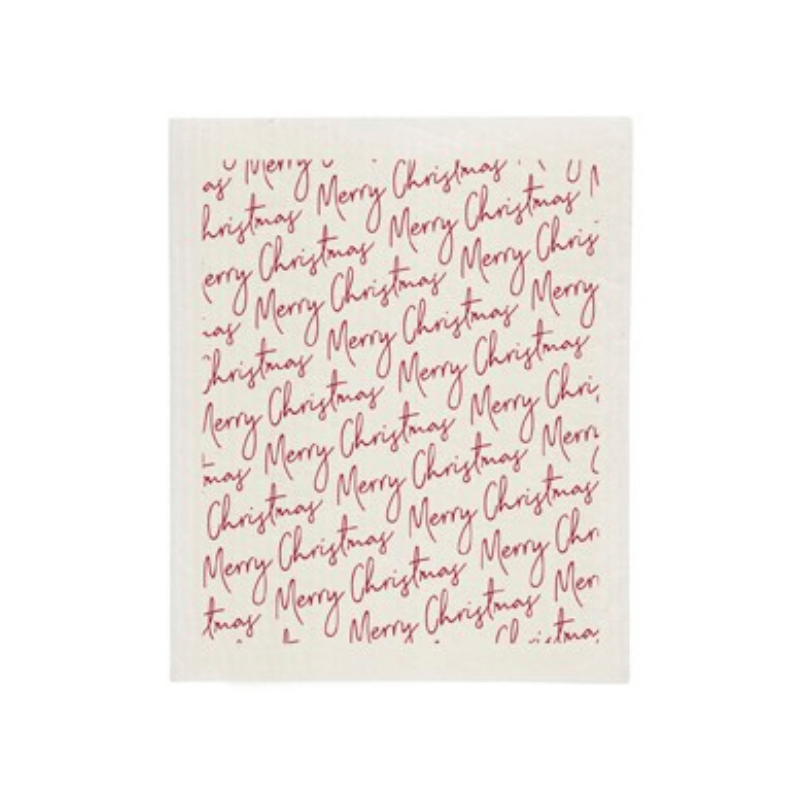 as Merry
hristmas Merry Christmas
erry Christmas Merry Christmas
as Merry Christmas Merry Chris
hristmas Merry Christmas Merry
erry Christmas Merry Christmas
mas Merry Christmas Merry Chri
Christmas Merry Christmas Merr
Merry Christmas Merry Christmas
tmas Merry Christmas Merry Chr
Merry Christmas Mer
Christma